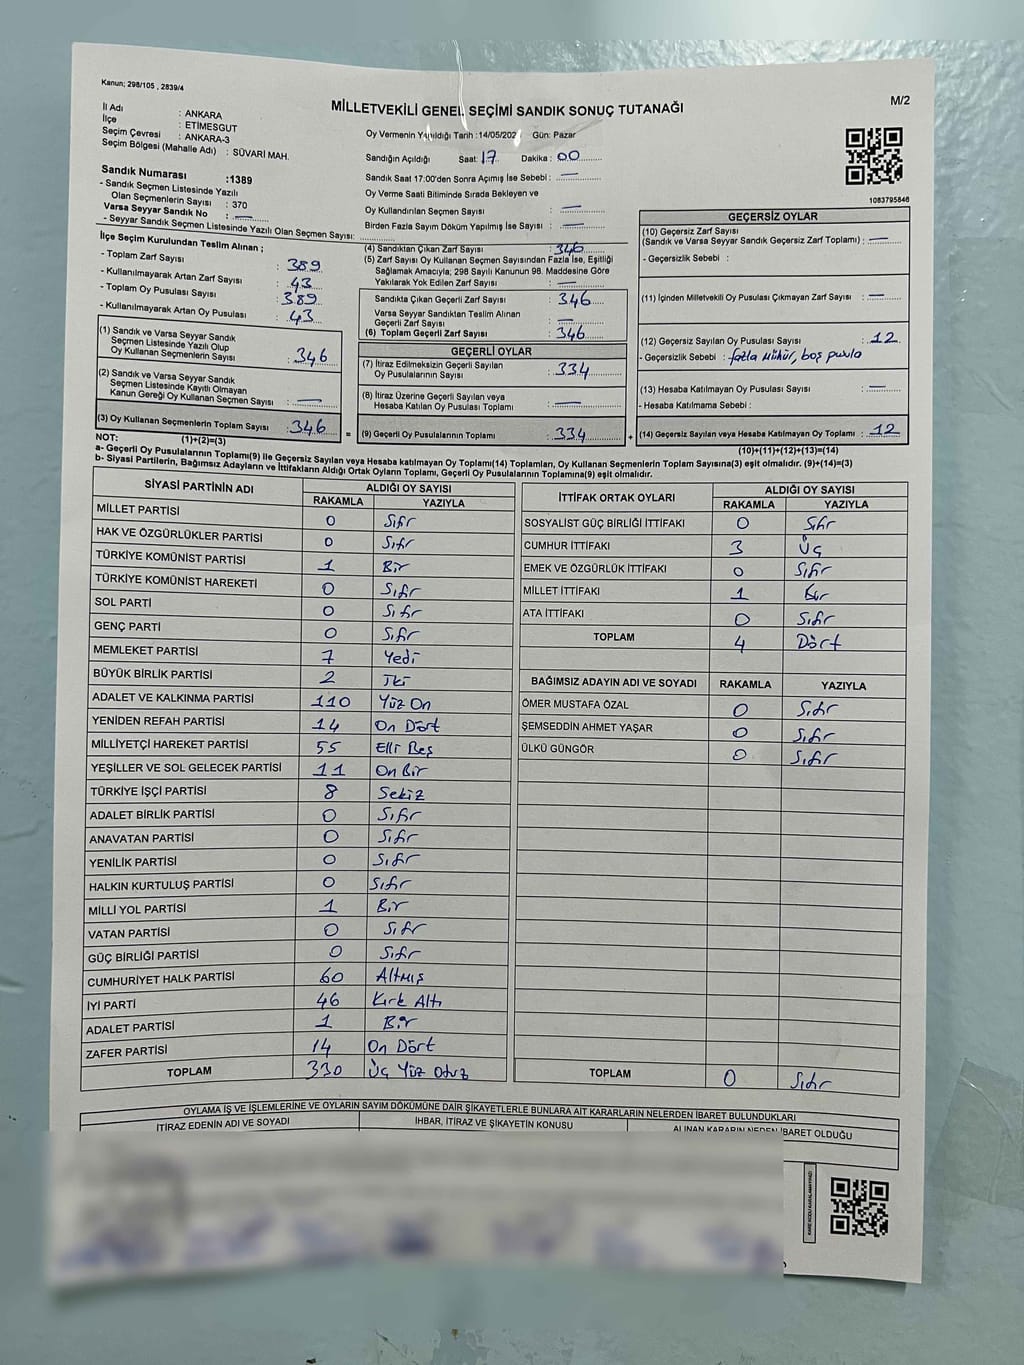 Kanun; 298/105 , 2839/4
MİLLETVEKİLİ GENEL SEÇİMİ SANDIK SONUÇ TUTANAĞI
M/2
İl Adı : ANKARA
İlçe : ETİMESGUT
Seçim Çevresi : ANKARA-3
Seçim Bölgesi (Mahalle Adı) : SÜVARİ MAH.
Oy Vermenin Yapıldığı Tarih :14/05/202 Gün: Pazar
Sandığın Açıldığı Saat: 17 Dakika : 00
Sandık Saat 17:00'den Sonra Açımış İse Sebebi : —
Oy Verme Saati Bitiminde Sırada Bekleyen ve
Oy Kullandırılan Seçmen Sayısı : —
Birden Fazla Sayım Döküm Yapılmış İse Sayısı : —
1083795846
Sandık Numarası :1389
- Sandık Seçmen Listesinde Yazılı
Olan Seçmenlerin Sayısı : 370
Varsa Seyyar Sandık No : —
- Seyyar Sandık Seçmen Listesinde Yazılı Olan Seçmen Sayısı:
İlçe Seçim Kurulundan Teslim Alınan ;
- Toplam Zarf Sayısı : 389
- Kullanılmayarak Artan Zarf Sayısı : 43
- Toplam Oy Pusulası Sayısı : 389
- Kullanılmayarak Artan Oy Pusulası : 43
(1) Sandık ve Varsa Seyyar Sandık
Seçmen Listesinde Yazılı Olup
Oy Kullanan Seçmenlerin Sayısı : 346
(2) Sandık ve Varsa Seyyar Sandık
Seçmen Listesinde Kayıtlı Olmayan
Kanun Gereği Oy Kullanan Seçmen Sayısı : —
(3) Oy Kullanan Seçmenlerin Toplam Sayısı : 346
(4) Sandıktan Çıkan Zarf Sayısı : 346
(5) Zarf Sayısı Oy Kullanan Seçmen Sayısından Fazla İse, Eşitliği
Sağlamak Amacıyla; 298 Sayılı Kanunun 98. Maddesine Göre
Yakılarak Yok Edilen Zarf Sayısı : —
Sandıkta Çıkan Geçerli Zarf Sayısı : 346
Varsa Seyyar Sandıktan Teslim Alınan
Geçerli Zarf Sayısı : —
(6) Toplam Geçerli Zarf Sayısı : 346
GEÇERLİ OYLAR
(7) İtiraz Edilmeksizin Geçerli Sayılan
Oy Pusulalarının Sayısı : 334
(8) İtiraz Üzerine Geçerli Sayılan veya
Hesaba Katılan Oy Pusulası Toplamı : —
= (9) Geçerli Oy Pusulalarının Toplamı : 334
GEÇERSİZ OYLAR
(10) Geçersiz Zarf Sayısı
(Sandık ve Varsa Seyyar Sandık Geçersiz Zarf Toplamı) : —
- Geçersizlik Sebebi :
(11) İçinden Milletvekili Oy Pusulası Çıkmayan Zarf Sayısı : —
(12) Geçersiz Sayılan Oy Pusulası Sayısı : 12
- Geçersizlik Sebebi : fazla mühür, boş pusula
(13) Hesaba Katılmayan Oy Pusulası Sayısı : —
- Hesaba Katılmama Sebebi :
+ (14) Geçersiz Sayılan veya Hesaba Katılmayan Oy Toplamı : 12
NOT: (1)+(2)=(3)
(10)+(11)+(12)+(13)=(14)
a- Geçerli Oy Pusulalarının Toplamı(9) ile Geçersiz Sayılan veya Hesaba katılmayan Oy Toplamı(14) Toplamları, Oy Kullanan Seçmenlerin Toplam Sayısına(3) eşit olmalıdır. (9)+(14)=(3)
b- Siyasi Partilerin, Bağımsız Adayların ve İttifakların Aldığı Ortak Oyların Toplamı, Geçerli Oy Pusulalarının Toplamına(9) eşit olmalıdır.
SİYASİ PARTİNİN ADI ALDIĞI OY SAYISI
RAKAMLA YAZIYLA
MİLLET PARTİSİ 0 Sıfır
HAK VE ÖZGÜRLÜKLER PARTİSİ 0 Sıfır
TÜRKİYE KOMÜNİST PARTİSİ 1 Bir
TÜRKİYE KOMÜNİST HAREKETİ 0 Sıfır
SOL PARTİ 0 Sıfır
GENÇ PARTİ 0 Sıfır
MEMLEKET PARTİSİ 7 Yedi
BÜYÜK BİRLİK PARTİSİ 2 İki
ADALET VE KALKINMA PARTİSİ 110 Yüz On
YENİDEN REFAH PARTİSİ 14 On Dört
MİLLİYETÇİ HAREKET PARTİSİ 55 Elli Beş
YEŞİLLER VE SOL GELECEK PARTİSİ 11 On Bir
TÜRKİYE İŞÇİ PARTİSİ 8 Sekiz
ADALET BİRLİK PARTİSİ 0 Sıfır
ANAVATAN PARTİSİ 0 Sıfır
YENİLİK PARTİSİ 0 Sıfır
HALKIN KURTULUŞ PARTİSİ 0 Sıfır
MİLLİ YOL PARTİSİ 1 Bir
VATAN PARTİSİ 0 Sıfır
GÜÇ BİRLİĞİ PARTİSİ 0 Sıfır
CUMHURİYET HALK PARTİSİ 60 Altmış
İYİ PARTİ 46 Kırk Altı
ADALET PARTİSİ 1 Bir
ZAFER PARTİSİ 14 On Dört
TOPLAM 330 Üç Yüz Otuz
İTTİFAK ORTAK OYLARI ALDIĞI OY SAYISI
RAKAMLA YAZIYLA
SOSYALİST GÜÇ BİRLİĞİ İTTİFAKI 0 Sıfır
CUMHUR İTTİFAKI 3 Üç
EMEK VE ÖZGÜRLÜK İTTİFAKI 0 Sıfır
MİLLET İTTİFAKI 1 Bir
ATA İTTİFAKI 0 Sıfır
TOPLAM 4 Dört
BAĞIMSIZ ADAYIN ADI VE SOYADI RAKAMLA YAZIYLA
ÖMER MUSTAFA ÖZAL 0 Sıfır
ŞEMSEDDİN AHMET YAŞAR 0 Sıfır
ÜLKÜ GÜNGÖR 0 Sıfır
TOPLAM 0 Sıfır
OYLAMA İŞ VE İŞLEMLERİNE VE OYLARIN SAYIM DÖKÜMÜNE DAİR ŞİKAYETLERLE BUNLARA AİT KARARLARIN NELERDEN İBARET BULUNDUKLARI
İTİRAZ EDENİN ADI VE SOYADI İHBAR, İTİRAZ VE ŞİKAYETİN KONUSU ALINAN KARARIN NEDEN İBARET OLDUĞU